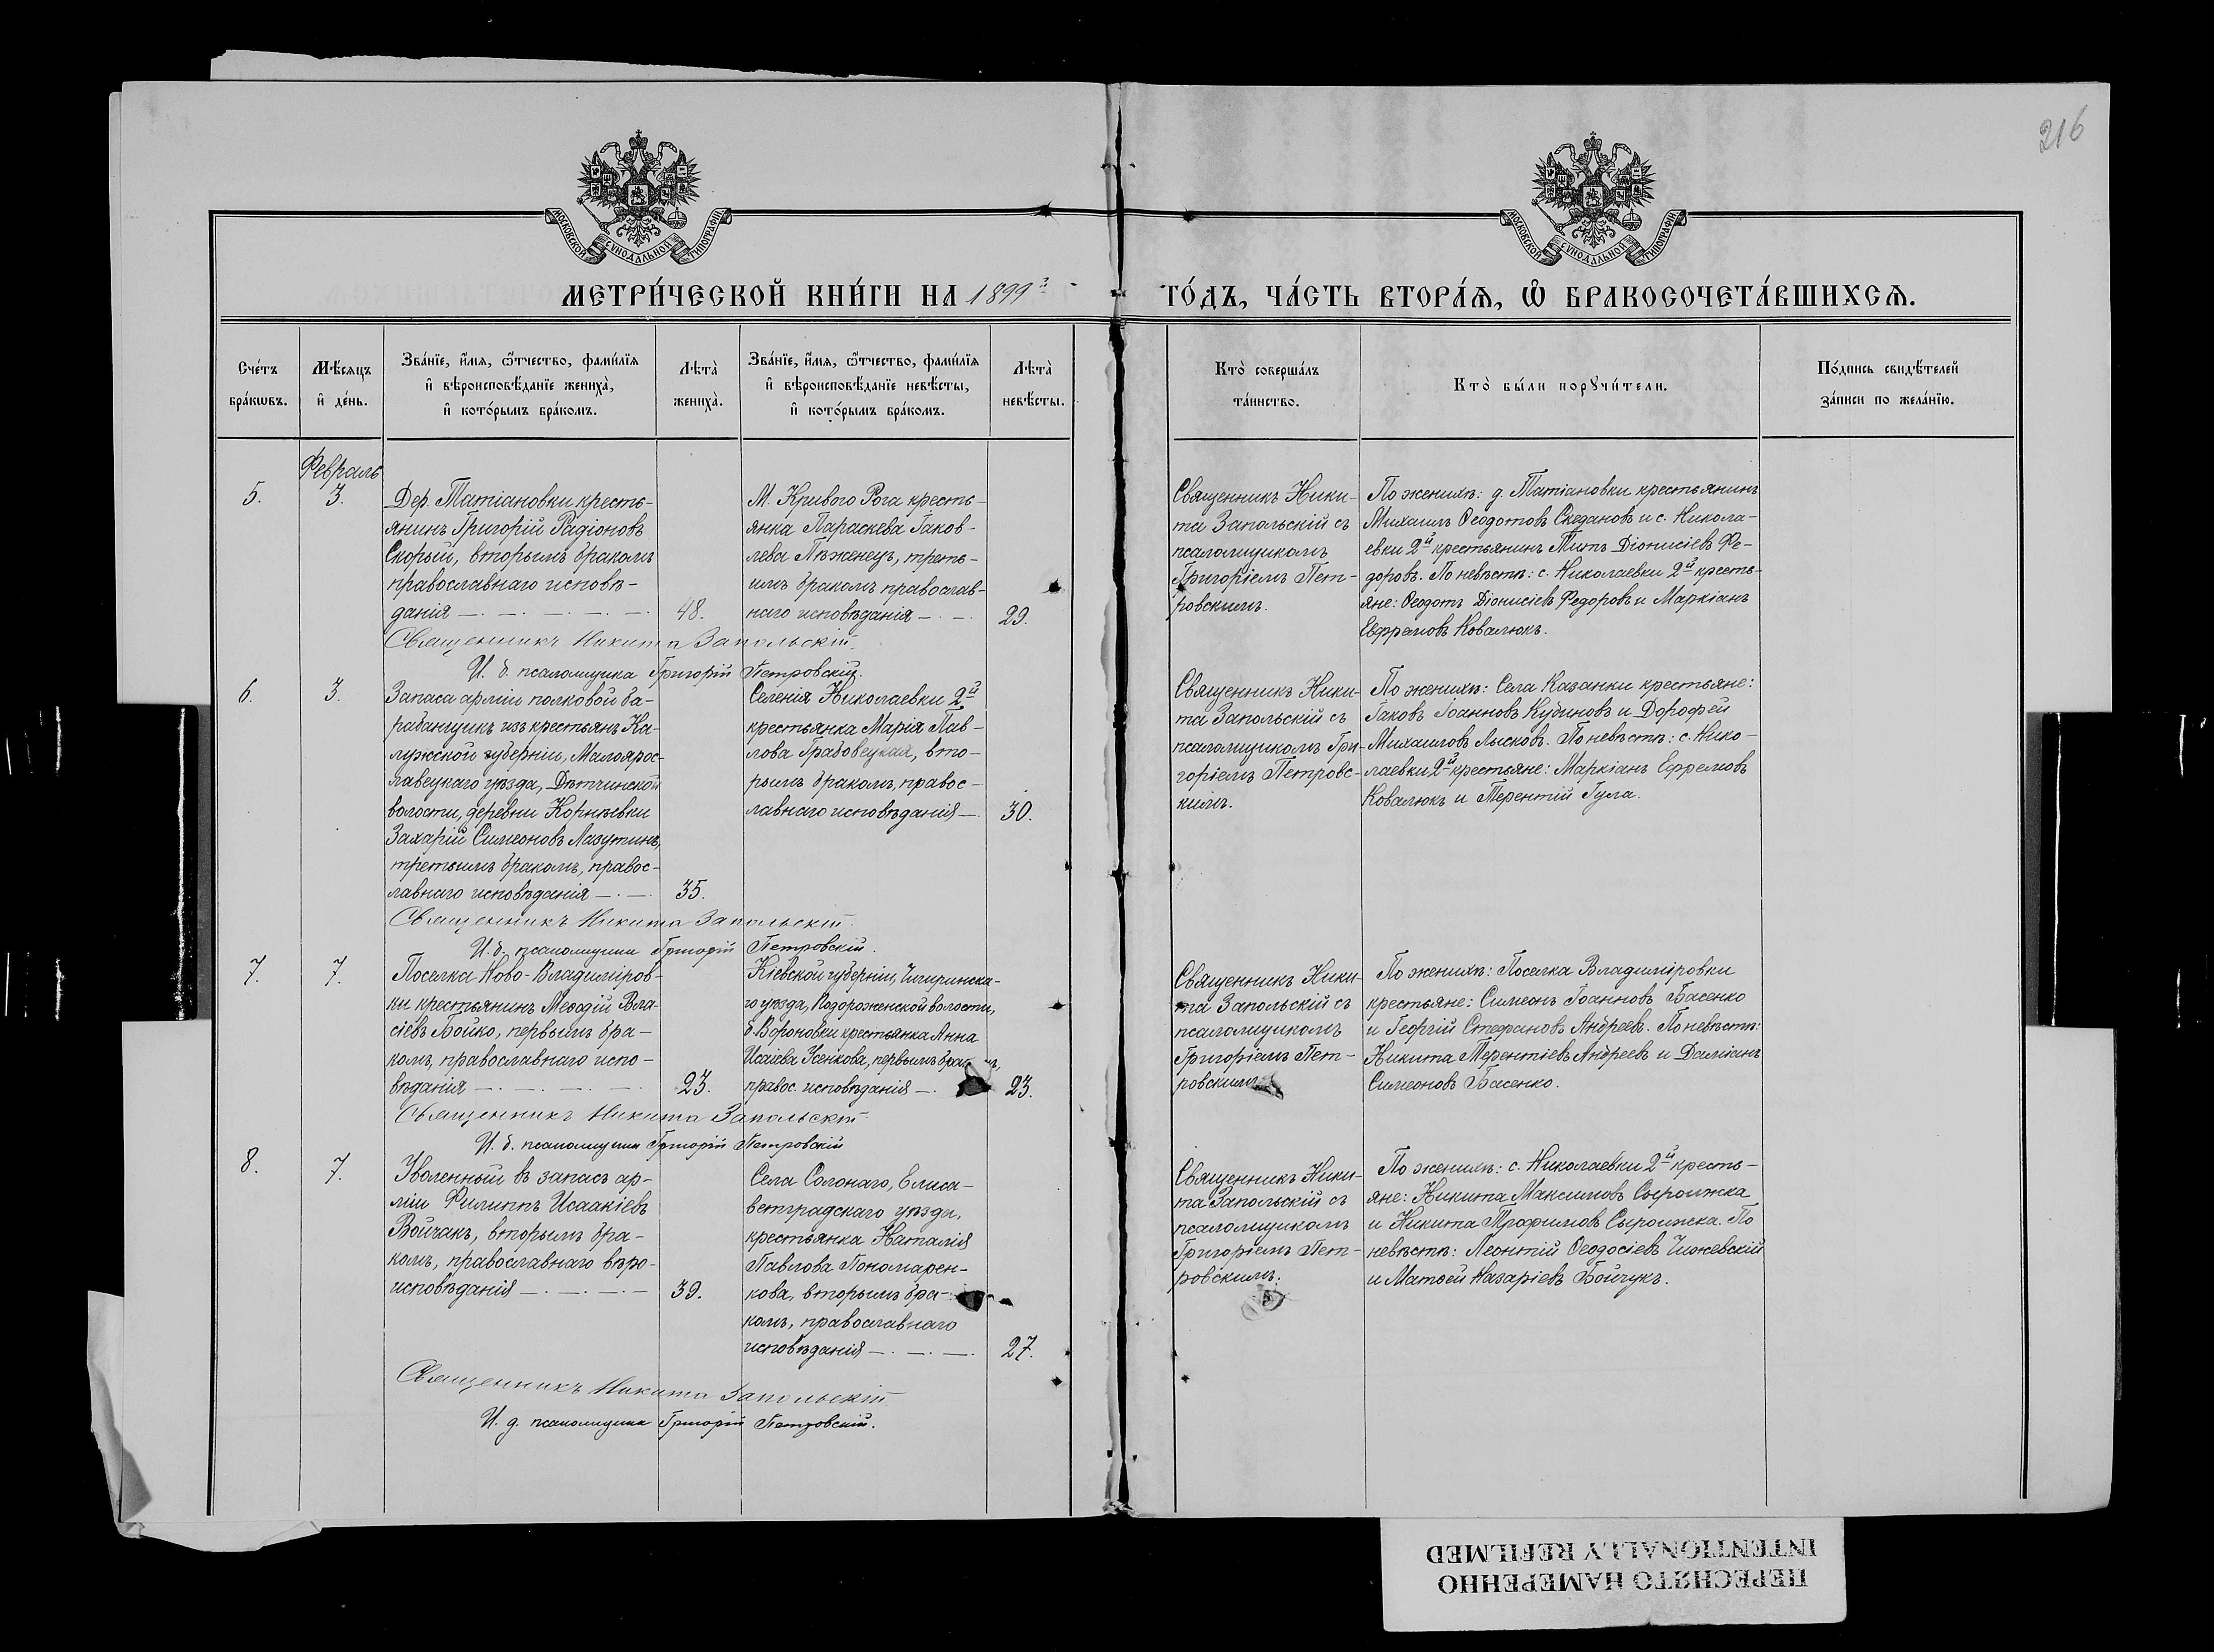 216
МОСКОВСКОЙ СѴНОДАЛЬНОЙ ТИПОГРАФІИ
МОСКОВСКОЙ СѴНОДАЛЬНОЙ ТИПОГРАФІИ
МЕТРИ́ЧЕСКОЙ КНИ́ГИ НА 1899 й
ГО́ДЪ, ЧА́СТЬ ВТОРА́Ѧ, Ѽ БРАКОСОЧЕТА́ВШИХСѦ.
Сче́тъ
бра́кѡвъ.
Мѣ́сяцъ
и҆ де́нь.
Зва́нїе, и҆́мя, ѻ҆́тчество, фами́лїя
и҆ вѣроисповѣ́данїе жениха̀,
и҆ кото́рымъ бра́комъ.
Лѣта̀
жениха̀.
Зва́нїе, и҆́мя, ѻ҆́тчество, фами́лїя
и҆ вѣроисповѣ́данїе невѣ́сты,
и҆ кото́рымъ бра́комъ.
Лѣта̀
невѣ́сты.
Кто̀ соверша́лъ
та́инство.
Кто̀ бы́ли порꙋчи́тели.
По́дпись свидѣ́телей
за́писи по жела́нїю.
Февраль
5.
3.
Дер. Татіановки кресть-
янинъ Григорій Радіоновъ
Скорый, вторымъ бракомъ
православнаго исповѣ-
данія —. —. —. —. —.
48.
М. Кривого Рога кресть-
янка Параскева Іаков-
лева Пѣженецъ, треть-
имъ бракомъ православ-
наго исповѣданія —. —.
29.
Священникъ Ники-
та Запольскій съ
псаломщикомъ
Григоріемъ Пет-
ровскимъ.
По женихѣ: д. Татіановки крестьянинъ
Михаилъ Ѳеодотовъ Скедановъ и с. Никола-
евки 2й крестьянинъ Титъ Діонисіевъ Фе-
доровъ. По невѣстѣ: с. Николаевки 2й кресть-
яне: Ѳеодотъ Діонисіевъ Федоровъ и Маркіанъ
Ефремовъ Ковалюкъ.
Священникъ Никита Запольскій.
И. д. псаломщика Григорій Петровскій.
6.
3.
Запаса арміи полковой ба-
рабанщикъ изъ крестьянъ Ка-
лужской губерніи, Малоярос-
лавецкаго уѣзда, Дѣтчинской
волости, деревни Корнѣевки
Захарій Симеоновъ Лазутинъ,
третьимъ бракомъ, правос-
лавнаго исповѣданія —. —.
35.
Селенія Николаевки 2й
крестьянка Марія Пав-
лова Грабовецкая, вто-
рымъ бракомъ, правос-
лавнаго исповѣданія —.
30.
Священникъ Ники-
та Запольскій съ
псаломщикомъ Гри-
горіемъ Петровс-
кимъ.
По женихѣ: Села Казанки крестьяне:
Іаковъ Іоанновъ Кубиновъ и Дорофей
Михаиловъ Лысковъ. По невѣстѣ: с. Нико-
лаевки 2й крестьяне: Маркіанъ Ефремовъ
Ковалюкъ и Терентій Гула.
Священникъ Никита Запольскій.
И. д. псаломщика Григорій Петровскій.
7.
7.
Поселка Ново-Владиміров-
ки крестьянинъ Меѳодій Вла-
сіевъ Бойко, первымъ бра-
комъ, православнаго испо-
вѣданія —. —. —. —.
23.
Кіевской губерніи, Чигиринска-
го уѣзда, Подорожненской волости,
с. Вороновки крестьянка Анна
Исаіева Усенкова, первымъ
правос. исповѣданія —.
23.
Священникъ Ники-
та Запольскій съ
псаломщикомъ
Григоріемъ Пет-
ровскимъ
По женихѣ: Поселка Владиміровки
крестьяне: Симеонъ Іоанновъ Басенко
и Георгій Стефановъ Андреевъ. По невѣстѣ:
Никита Терентіевъ Андреевъ и Даміанъ
Симеоновъ Басенко.
Священникъ Никита Запольскій.
И. д. псаломщика Григорій Петровскій
8.
7.
Уволенный въ запасъ ар-
міи Филиппъ Исаакіевъ
Войчакъ, вторымъ бра-
комъ, православнаго вѣро-
исповѣданія —. —. —. —
39.
Села Солонаго, Елиса-
ветградскаго уѣзда,
крестьянка Наталія
Павлова Пономарен-
кова, вторымъ бра-
комъ, православнаго
исповѣданія —. —. —.
27.
Священникъ Ники-
та Запольскій съ
псаломщикомъ
Григоріемъ Пет-
ровскимъ.
По женихѣ: с. Николаевки 2й кресть-
яне: Никита Максимовъ Сыроижка
и Никита Трофимовъ Сыроижка. По
невѣстѣ: Леонтій Ѳеодосіевъ Чижевскій
и Матѳей Назаріевъ Бойчукъ.
Священникъ Никита Запольскій
И. д. псаломщика Григорій Петровскій.
ПЕРЕСНЯТО НАМЕРЕННО
INTENTIONALLY REFILMED